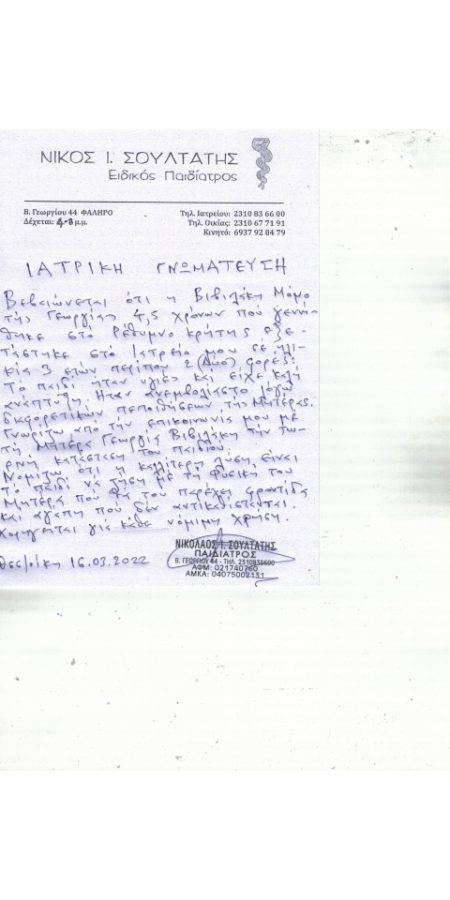 ΝΙΚΟΣ Ι. ΣΟΥΛΤΑΤΗΣ
Ειδικός Παιδίατρος
Β. Γεωργίου 44 ΦΑΛΗΡΟ
Δέχεται: μ.μ.
Τηλ. Ιατρείου: 2310 83 66 00
Τηλ. Οικίας: 2310 67 71 91
Κινητό: 6937 92 84 79
ΙΑΤΡΙΚΗ ΓΝΩΜΑΤΕΥΣΗ
Βεβαιώνεται ότι η Βιβιλάκη
της Γεωργίας 4,5 χρονων που γεννή
θηκε στο Ρέθυμνο κρήτης εξε
τάστηκε στο Ιατρείο μου σε ηλι
κία 3 ετών περίπου 2 (Δύο) φορες.
Το παιδί ήταν υγιές και είχε καλή
ανάπτυξη. Ηταν ανεμβολίαστο λόγω
πεποιθήσεων της Μητέρας.
Γνωρίζω από την επικοινωνία μου με
τη Μητέρα Γεωργία Βιβιλάκη την τω
ρινη κατάσταση του παιδιού.
Νομίζω ότι η καλλίτερη λύση είναι
το παιδί να ζήση με τη φυσική του
Μητέρα που θα του παρέχει φροντίδα
και αγάπη που δεν αντικαθίσταται.
Χορηγείται για κάθε νόμιμη χρήση.
Θεσ/νίκη 16.03.2022
ΝΙΚΟΛΑΟΣ Ι. ΣΟΥΛΤΑΤΗΣ
ΠΑΙΔΙΑΤΡΟΣ
Β. ΓΕΩΡΓΙΟΥ 44 - ΤΗΛ. 2310836600
ΑΦΜ: 021740760
ΑΜΚΑ: 04075002131